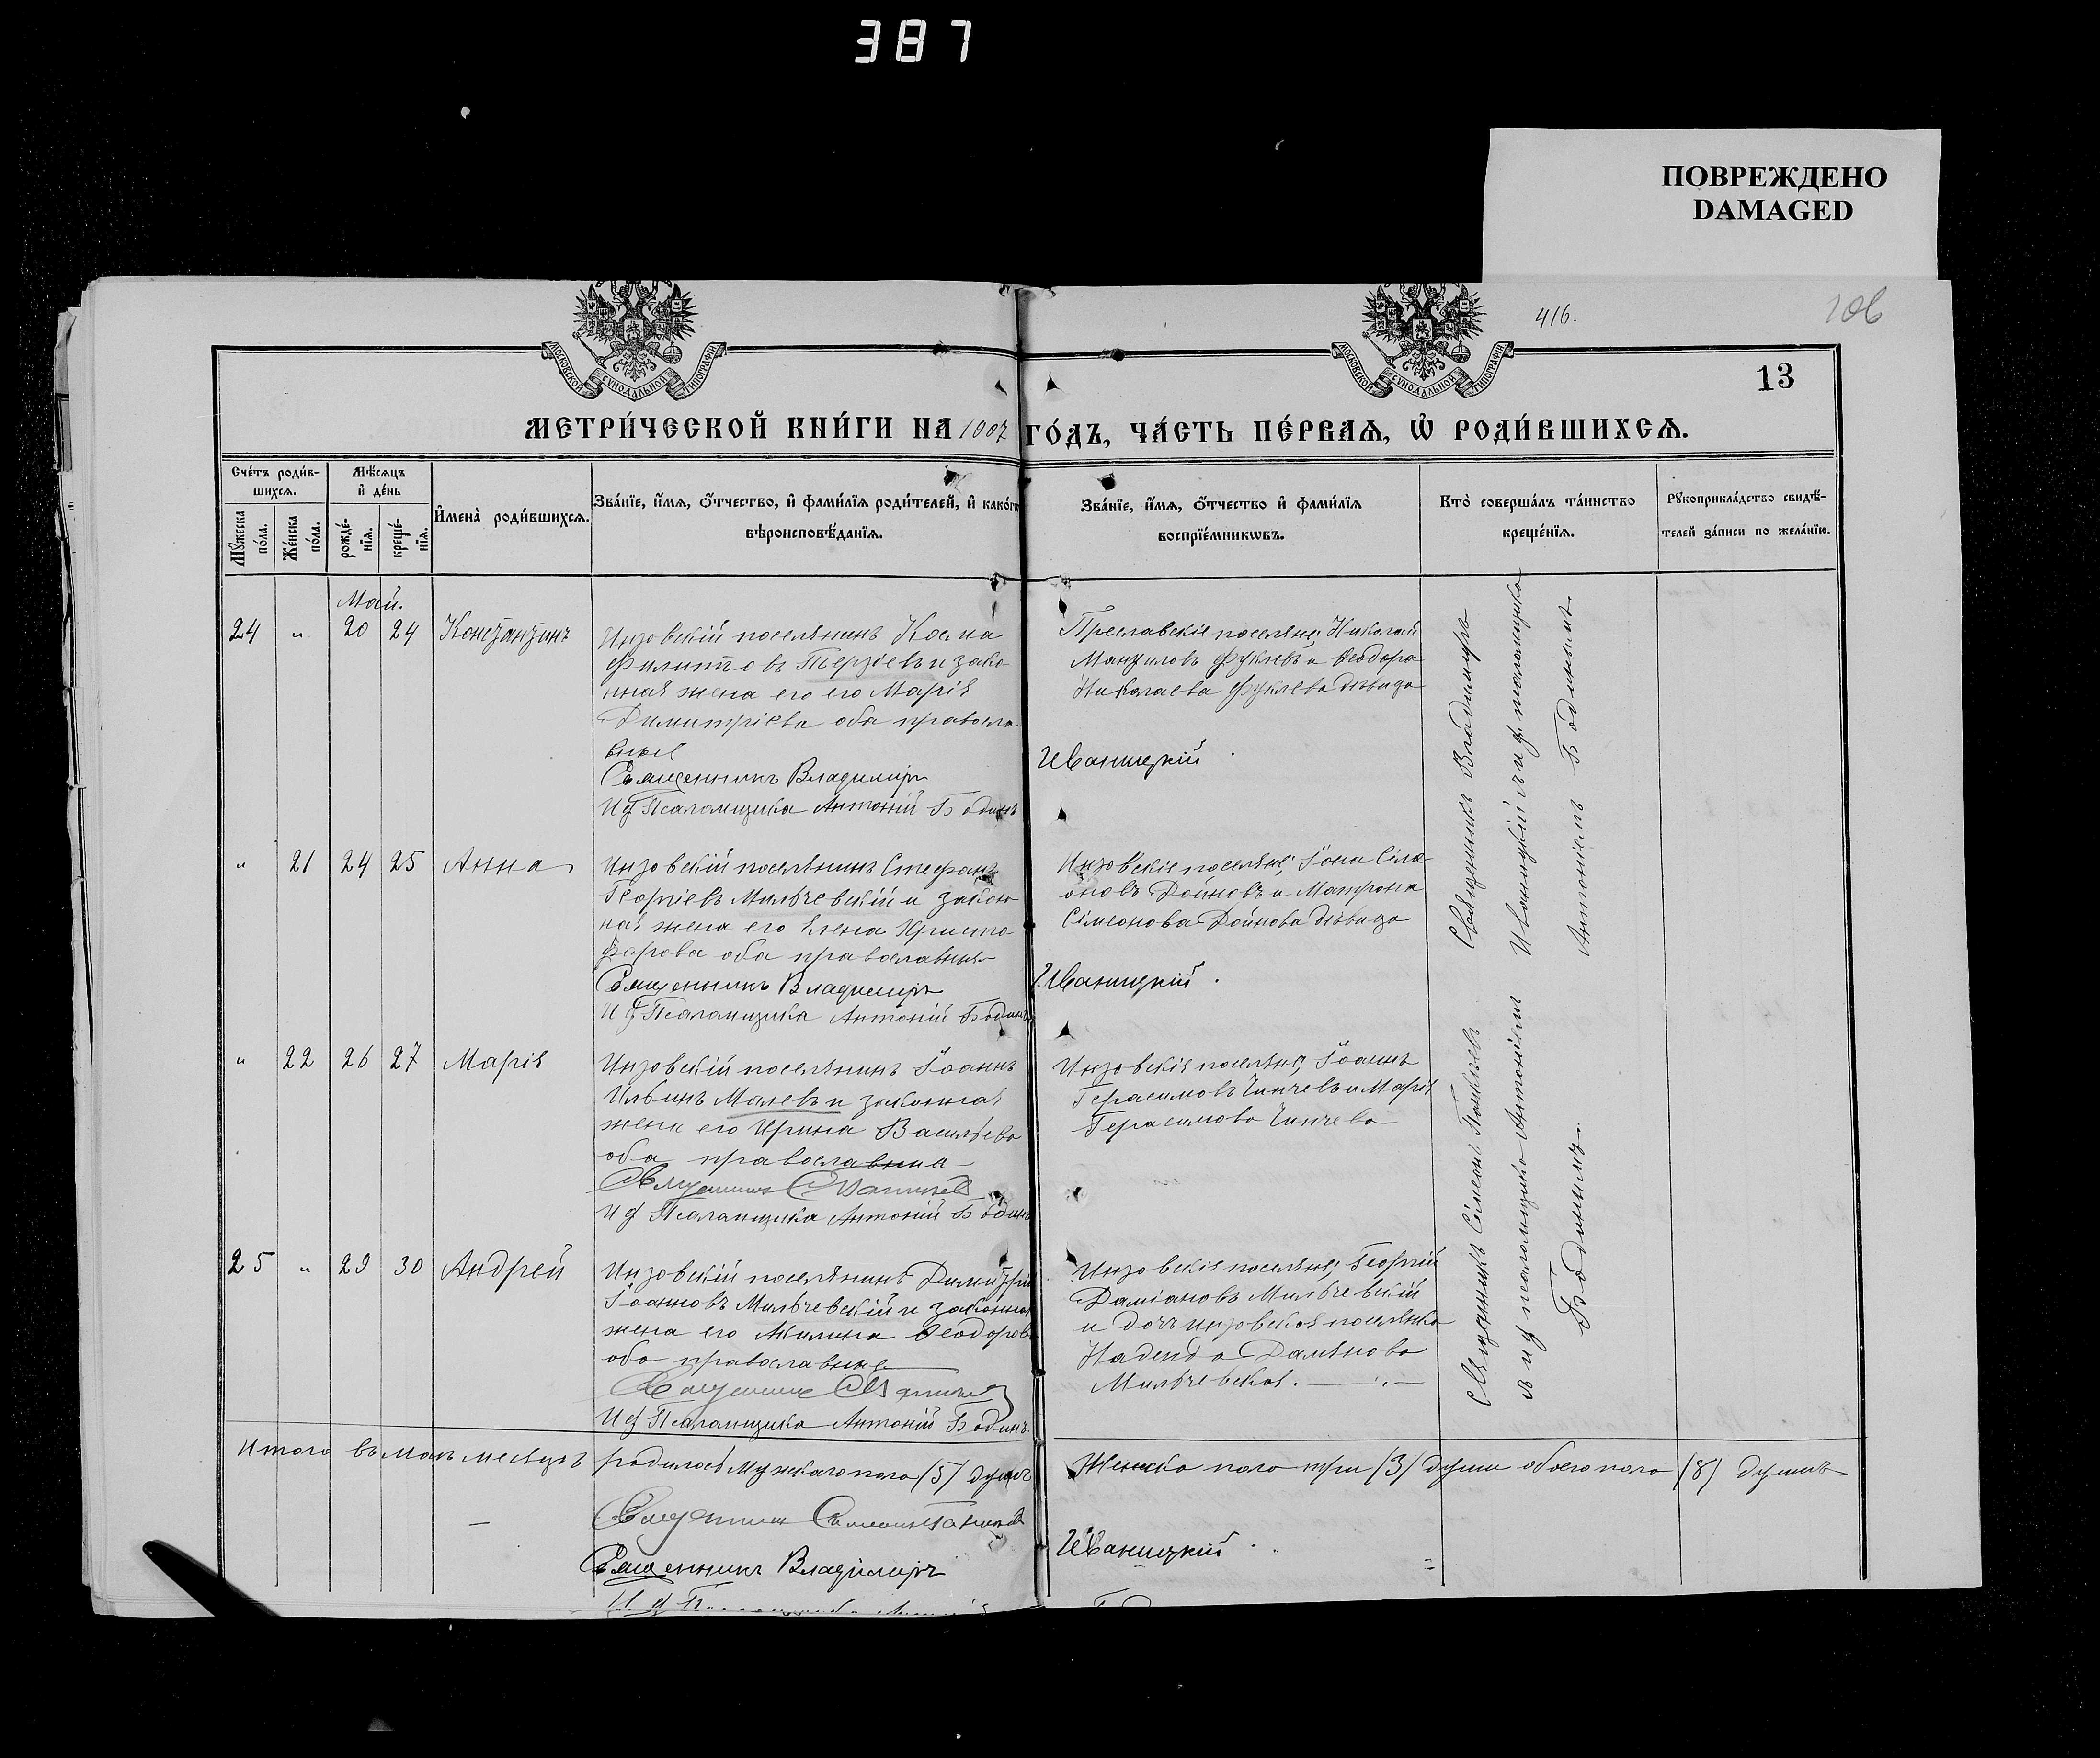 387
ПОВРЕЖДЕНО
DAMAGED
416.
106
13
МОСКОВСКОЙ СУНОДАЛЬНОЙ ТИПОГРАФІИ
МОСКОВСКОЙ СУНОДАЛЬНОЙ ТИПОГРАФІИ
МЕТРИ́ЧЕСКОЙ КНИ́ГИ НА 1907 ГО́ДЪ, ЧА́СТЬ ПЕ́РВАѦ, Ѡ҆ РОДИ́ВШИХСѦ.
Сче́тъ роди́в-
шихсѧ.
Мѣ́сѧцъ
и҆ де́нь
Мꙋ́жеска по́ла.
Же́нска по́ла.
рожде́-
нїѧ.
креще́-
нїѧ.
И҆мена̀ роди́вшихсѧ.
Зва́нїе, и҆́мѧ, ѻ҆́тчество, и҆ фами́лїѧ роди́телей, и҆ како́гѡ
вѣроисповѣ́данїѧ.
Зва́нїе, и҆́мѧ, ѻ҆́тчество и҆ фами́лїѧ
воспрїе́мникѡвъ.
Кто̀ соверша́лъ та́инство
креще́нїѧ.
Рꙋкоприкла́дство свидѣ́-
телей за́писи по жела́нїю.
Май.
24 „ 20 24 Константинъ
Инзовскій поселянинъ Косма
Филиповъ Терзіевъ и зако
нная жена его его Марія
Димитріева оба правосла
вные
Священникъ Владимиръ
И ф Псаломщика Антоній Бодинъ
Преславскіе поселяне; Николай
Мануиловъ Фуклевъ и Ѳеодора
Николаева Фуклева дѣвица
Иваницкій
Священникъ Владимиръ
Иваницкій и и ф. псаломщика
Антоніемъ Бодинымъ.
„ 21 24 25 Анна
Инзовскій поселянинъ Стефанъ
Георгіевъ Мильчевскій и закон
ная жена его Елена Христо
форова оба православные
Священникъ Владимиръ
И ф Псаломщика Антоній Бодинъ
Инзовскіе поселяне; Іона Сіме
оновъ Дойновъ и Матрона
Сімеонова Дойнова дѣвица
Иваницкій.
„ 22 26 27 Марія
Инзовскій поселянинъ Іоаннъ
Ильинъ Малевъ и законная
жена его Ирина Васильева
оба православные
Священникъ
И ф Псаломщика Антоній Бодинъ
Инзовскіе поселяне; Іоаннъ
Герасимовъ Чинчевъ и Марія
Герасимова Чинчева
Священникъ Сімеонъ
и и ф псаломщика Антоніемъ
Бодинымъ.
25 „ 29 30 Андрей
Инзовскій поселянинъ Димитрій
Іоанновъ Мильчевскій и законная
жена его Акилина Ѳеодорова
оба православные
Священникъ
И ф Псаломщика Антоній Бодинъ
Инзовскіе поселяне; Георгій
Даміановъ Мильчевскій
и дочь инзовскоя поселянка
Надежда Дамянова
Мильчевская.
Итого въ маѣ месяцѣ родилось мужского пола (5) душъ Женско пола три (3) души обоего пола (8) душъ
Священникъ Сімеонъ
Священникъ Владимиръ Иваницкій